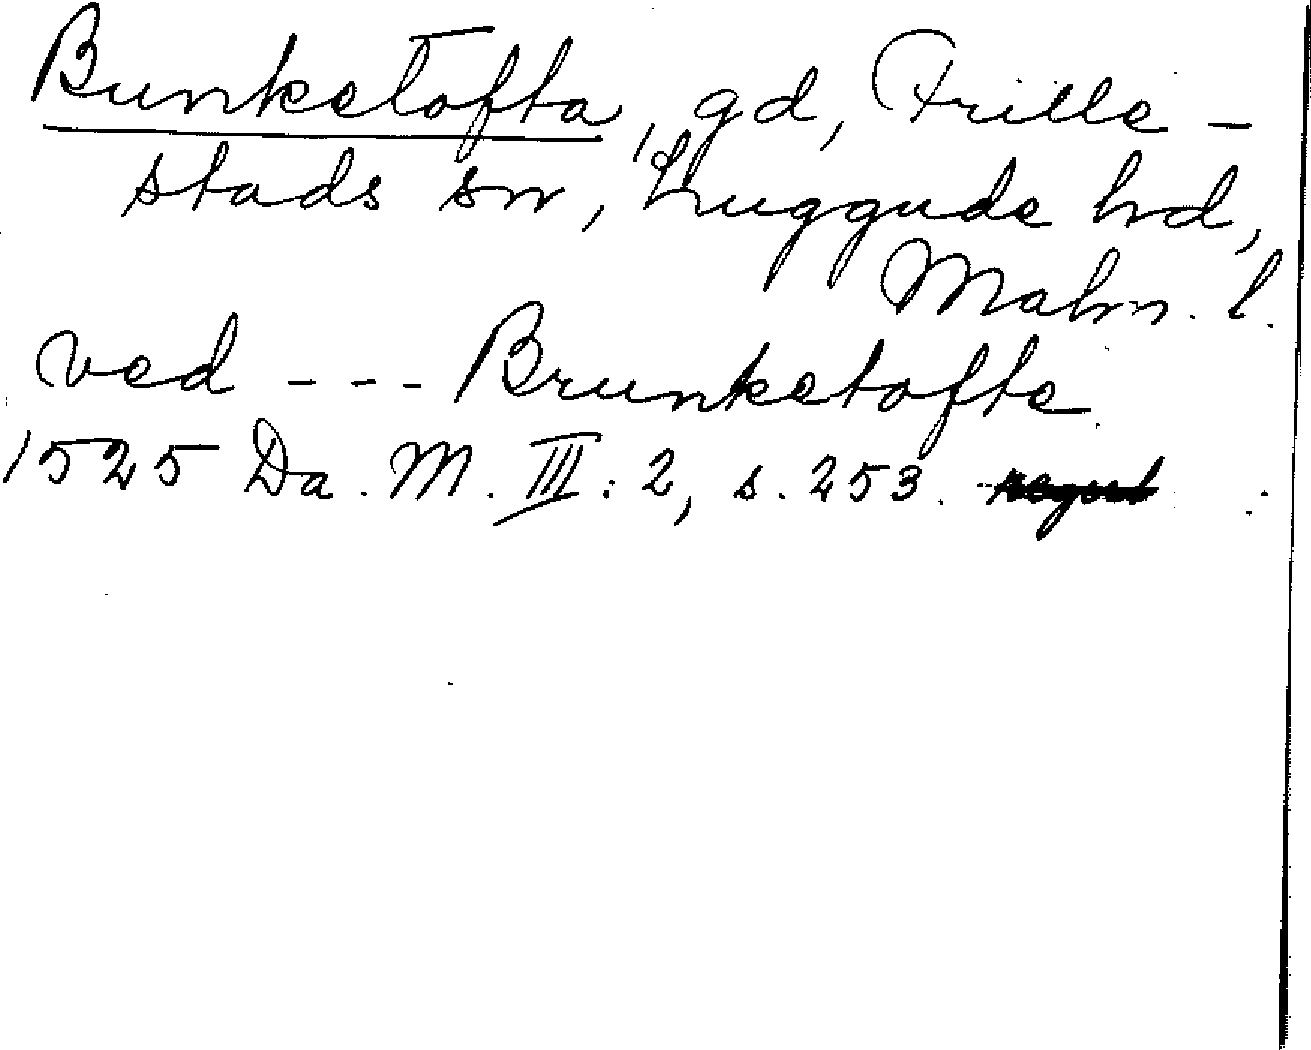 Bunketofta, gd, Frille-
stads sn, Luggude hd,
Malm. l.
ved --- Brunketofte
1525 Da. M. III: 2, s. 253.